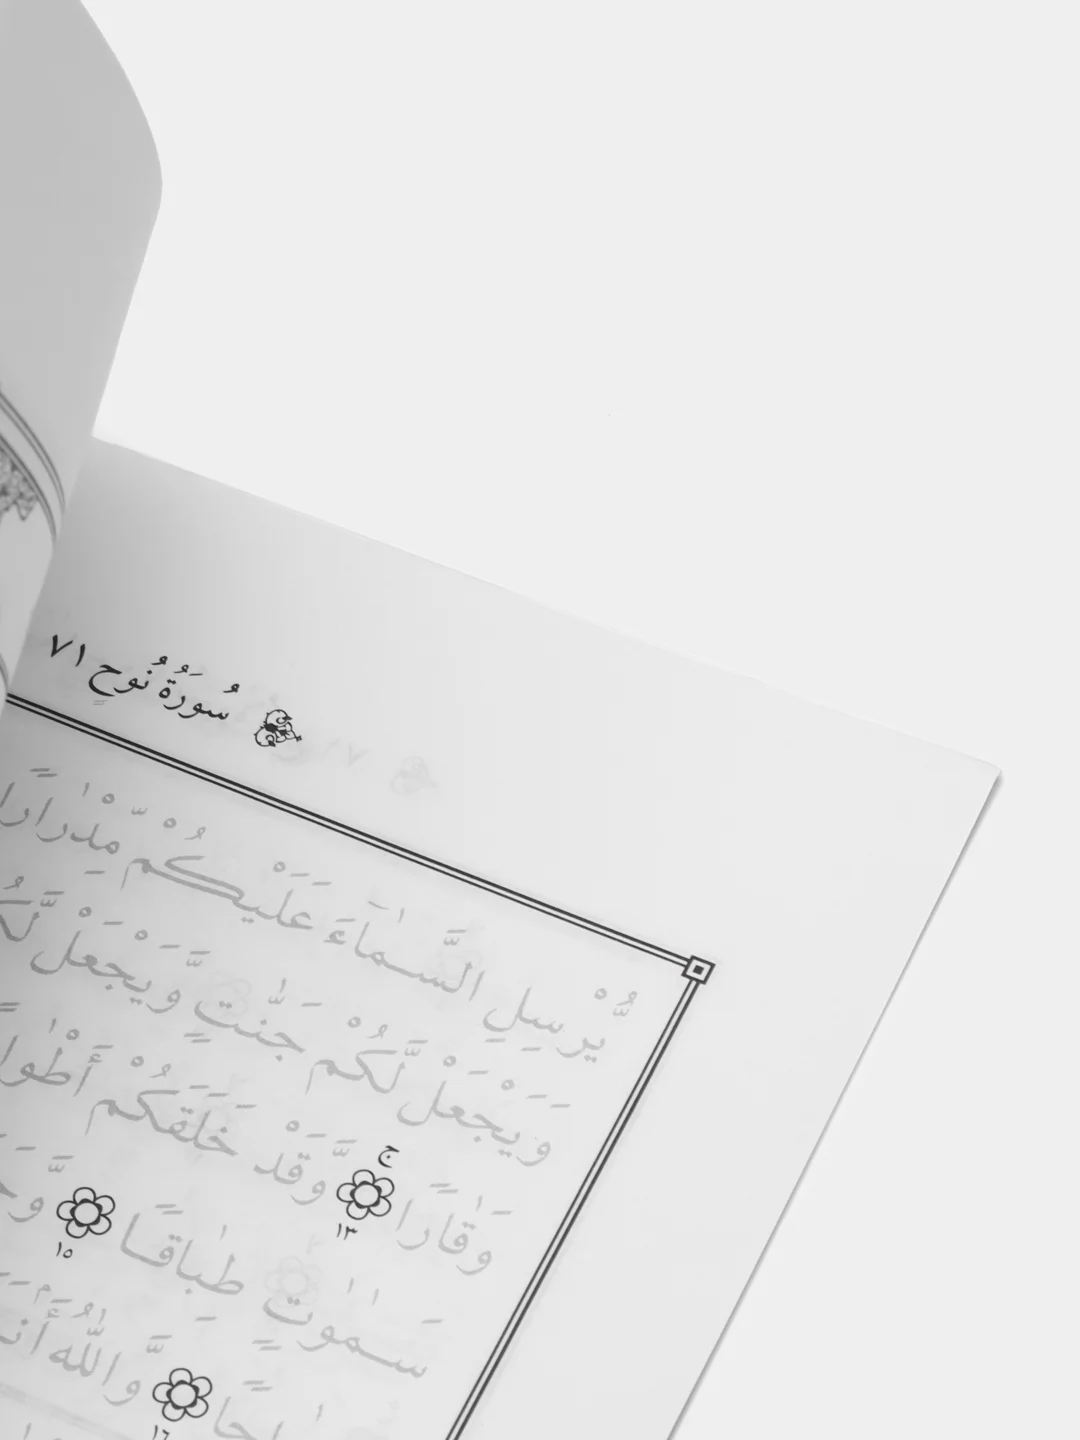 سُورَةُ نُوحٍ ٧١
يُّرْسِلِ السَّمَآءَ عَلَيْكُمْ مِّدْرَارًا
وَيَجْعَلْ لَّكُمْ جَنّٰتٍ وَّيَجْعَلْ
وَقَارًا ج ١٣ وَقَدْ خَلَقَكُمْ
سَمٰوٰتٍ طِبَاقًا ١٥
١٦ وَاللّٰهُ